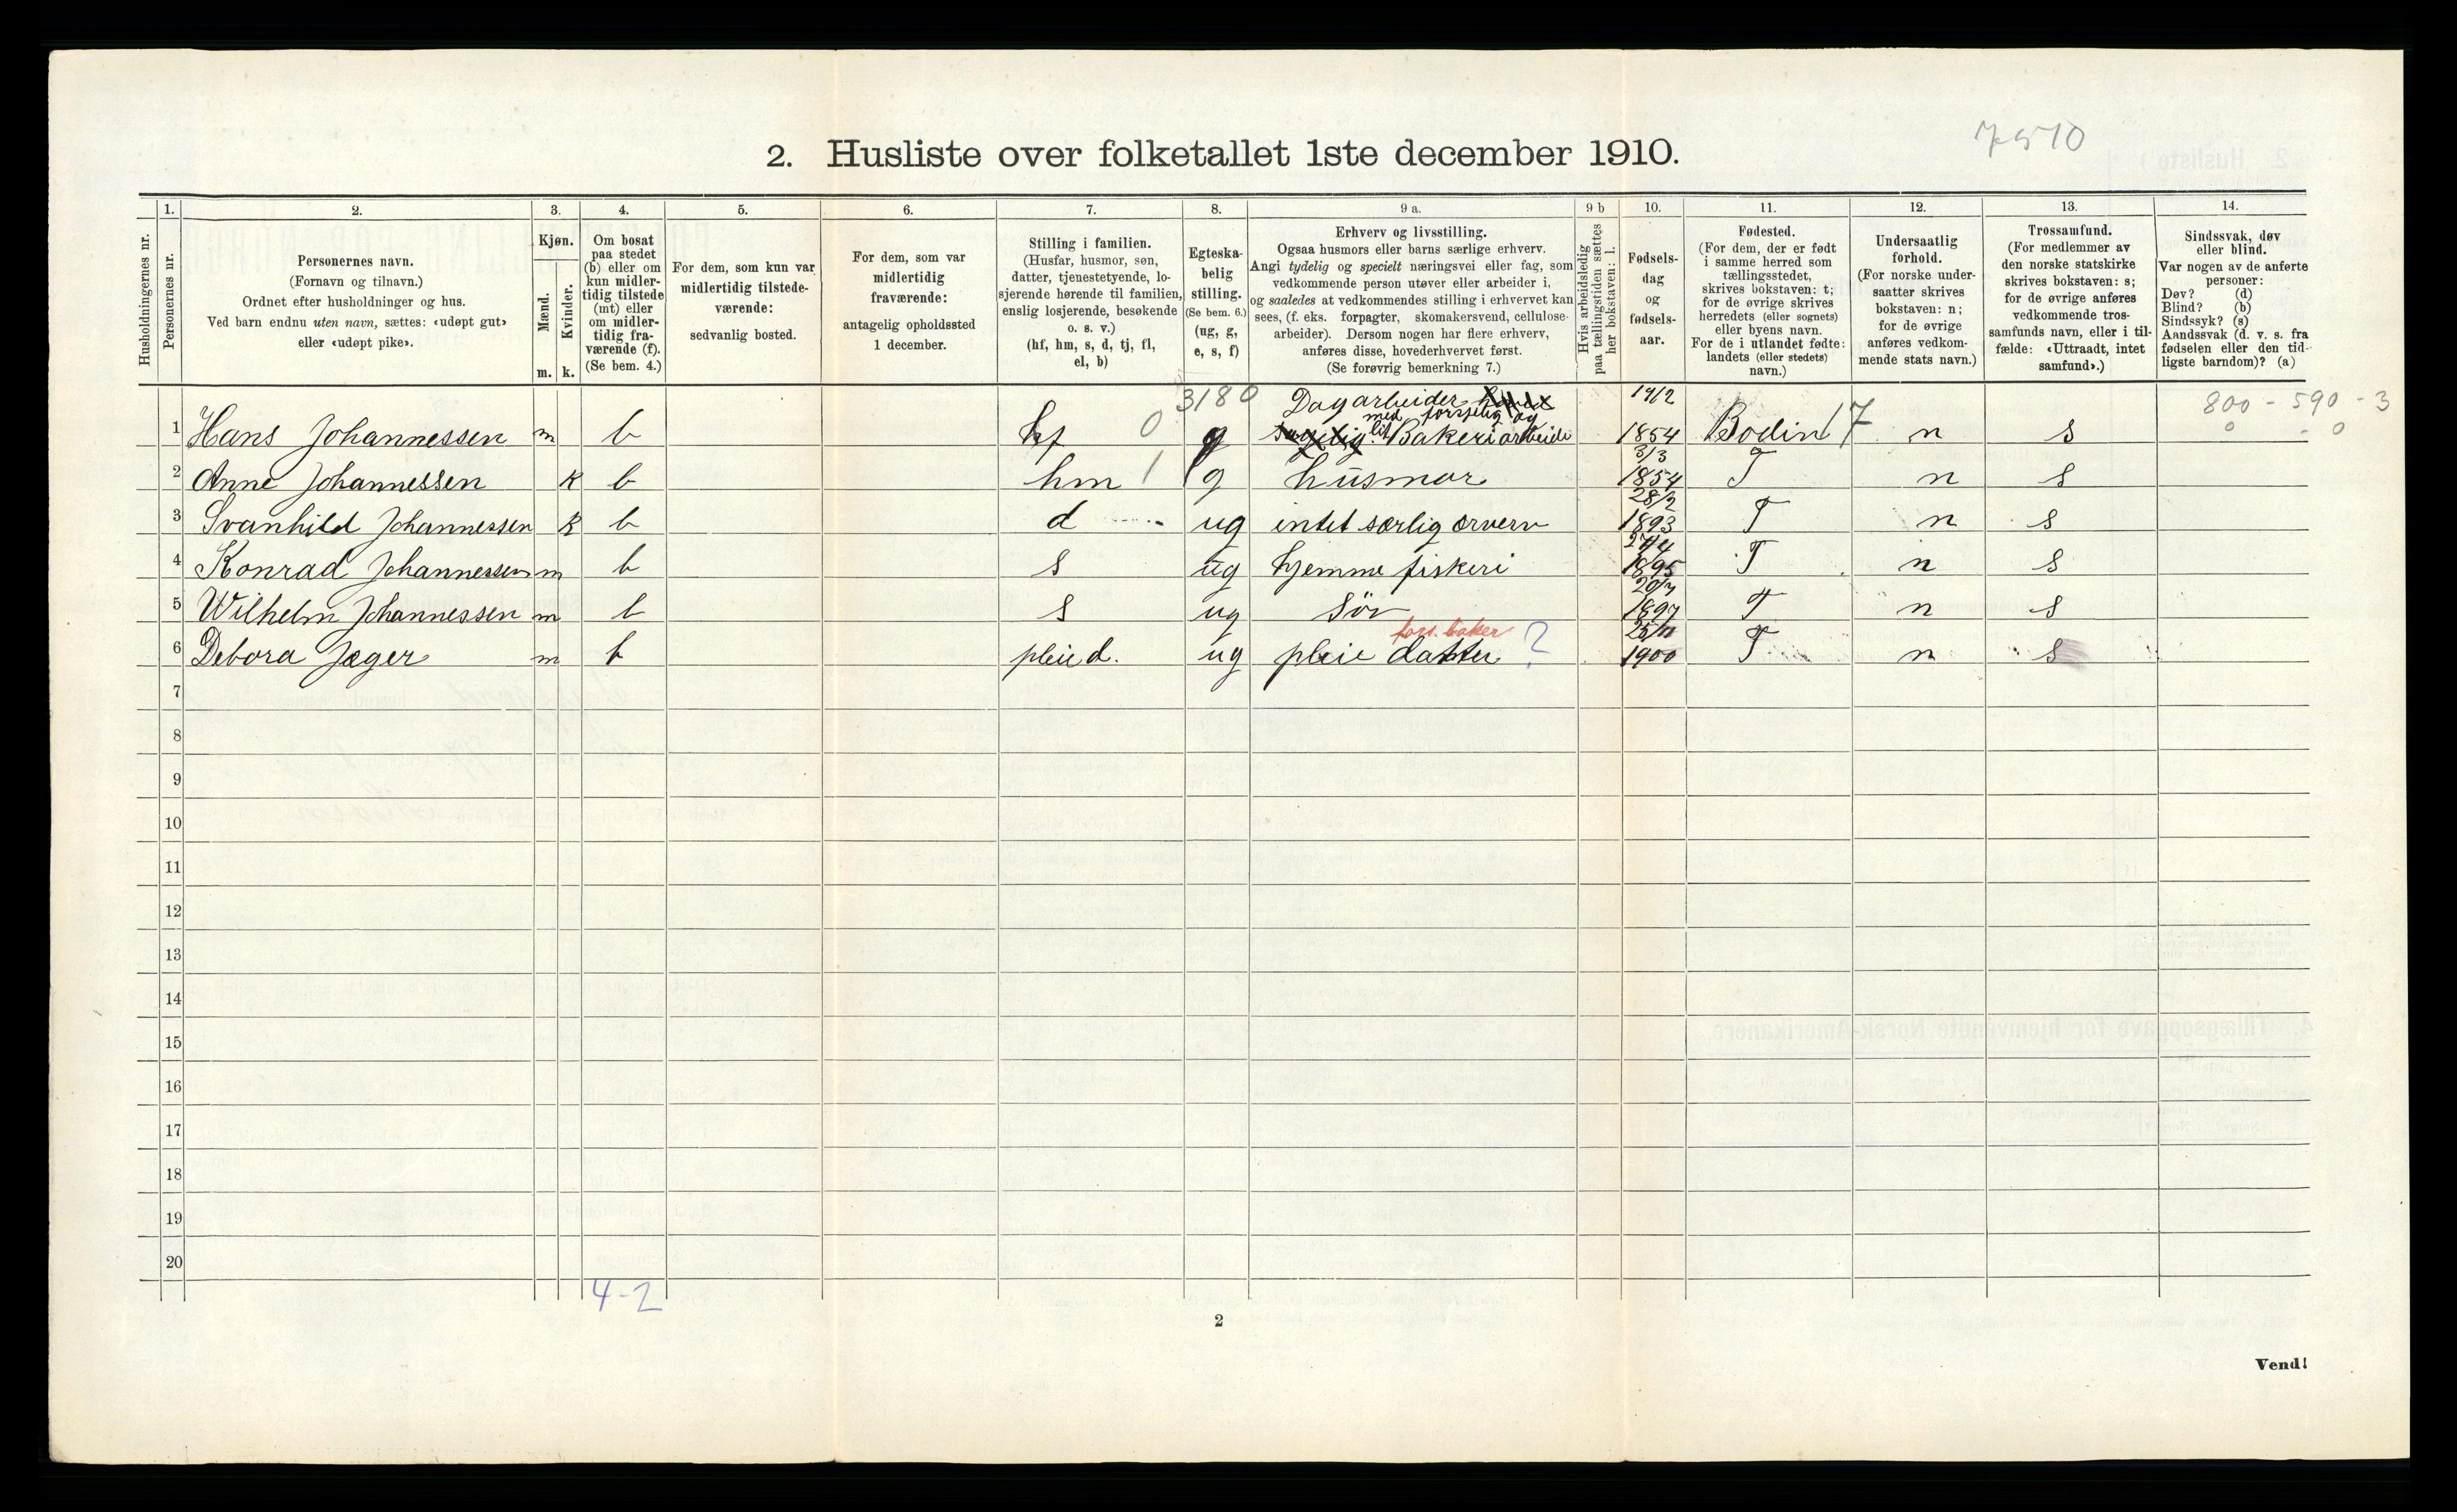 7510
2. Husliste over folketallet 1ste december 1910.
Husholdningernes nr.
1.
Personernes nr.
2.
Personernes navn.
(Fornavn og tilnavn.)
Ordnet efter husholdninger og hus.
Ved barn endnu uten navn, sættes: «udøpt gut»
eller «udøpt pike».
3.
Kjøn.
Mænd.
Kvinder.
m. k.
4.
Om bosat
paa stedet
(b) eller om
kun midler-
tidig tilstede
(mt) eller
om midler-
tidig fra-
værende (f).
(Se bem. 4.)
5.
For dem, som kun var
midlertidig tilstede-
værende:
sedvanlig bosted.
6.
For dem, som var
midlertidig
fraværende:
antagelig opholdssted
1 december.
7.
Stilling i familien.
(Husfar, husmor, søn,
datter, tjenestetyende, lo-
sjerende hørende til familien,
enslig losjerende, besøkende
o. s. v.)
(hf, hm, s, d, tj, fl,
el, b)
8.
Egteska-
belig
stilling.
(Se bem. 6.)
(ug, g,
e, s, f)
9 a.
Erhverv og livsstilling.
Ogsaa husmors eller barns særlige erhverv.
Angi tydelig og specielt næringsvei eller fag, som
vedkommende person utøver eller arbeider i,
og saaledes at vedkommendes stilling i erhvervet kan
sees, (f. eks. forpagter, skomakersvend, cellulose-
arbeider). Dersom nogen har flere erhverv,
anføres disse, hovederhvervet først.
(Se forøvrig bemerkning 7.)
9 b
Hvis arbeidsledig
paa tællingstiden sættes
her bokstaven: l.
10.
Fødsels-
dag
og
fødsels-
aar.
11.
Fødested.
(For dem, der er født
i samme herred som
tællingsstedet,
skrives bokstaven: t;
for de øvrige skrives
herredets (eller sognets)
eller byens navn.
For de i utlandet fødte:
landets (eller stedets)
navn.)
12.
Undersaatlig
forhold.
(For norske under-
saatter skrives
bokstaven: n;
for de øvrige
anføres vedkom-
mende stats navn.)
13.
Trossamfund.
(For medlemmer av
den norske statskirke
skrives bokstaven: s;
for de øvrige anføres
vedkommende tros-
samfunds navn, eller i til-
fælde: «Uttraadt, intet
samfund».)
14.
Sindssvak, døv
eller blind.
Var nogen av de anførte
personer:
Døv? (d)
Blind? (b)
Sindssyk? (s)
Aandssvak (d. v. s. fra
fødselen eller den tid-
ligste barndom)? (a)
3180 Dagarbeider 19/2 800 - 590 - 3
med forsjelig og
1 Hans Johannessen m b hf 0 g lit Bakeriarbeide 1854 Bodin 7 n s 0 - 0
3/3
2 Anne Johannessen k b hm 1 g husmor 1854 T n s
28/2
3 Svanhild Johannessen k b d ug intet særlig ærverv 1893 T n s
4 Konrad Johannessen m b s ug hjemme fiskeri 1895 T n s
5 Wilhelm Johannessen m b s ug Sön 1897 T n s
fors. baker 25/11
6 Debora Jæger m b pleie d. ug pleie datter ? 1900 T n s
7
8
9
10
11
12
13
14
15
16
17
18
19
20
4-2
2
Vend!